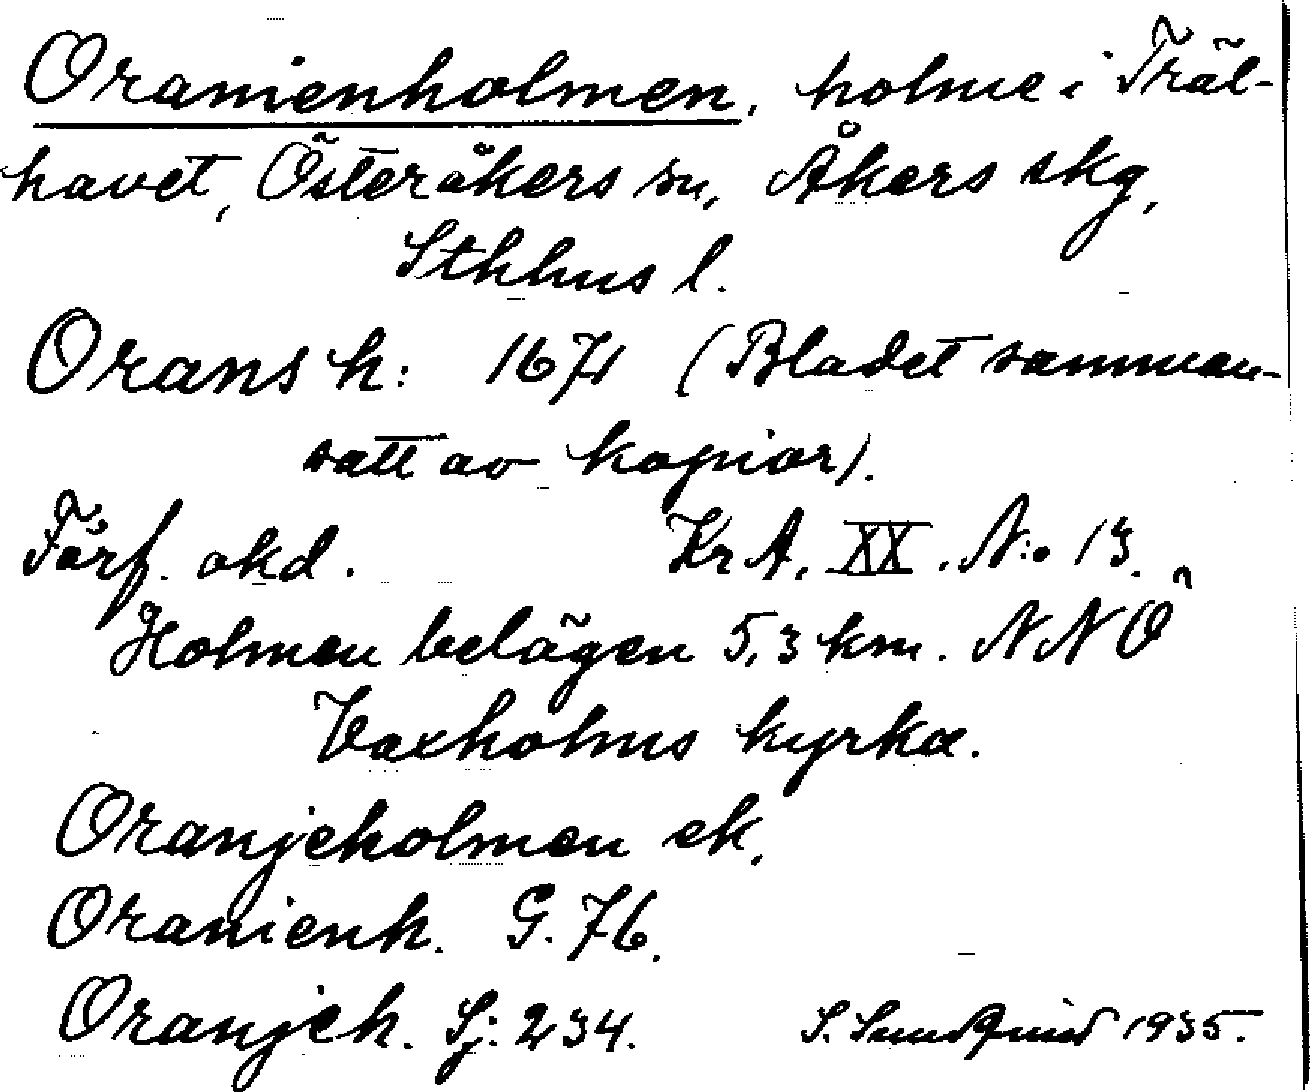 Oranienholmen, holme i Träl-
havet, Österåkers sn, Åkers skg,
Sthlms l.
Orans h: 1671 (Bladet samman-
satt av kopior).
Förf. okd. Kr A. XX. N:o 13.
Holmen belägen 5,3 km. NNÖ
Vaxholms kyrka.
Oranjeholmen ek.
Oranienh. G. 76.
Oranjeh. Sj: 234. S. Sundqvist 1935.